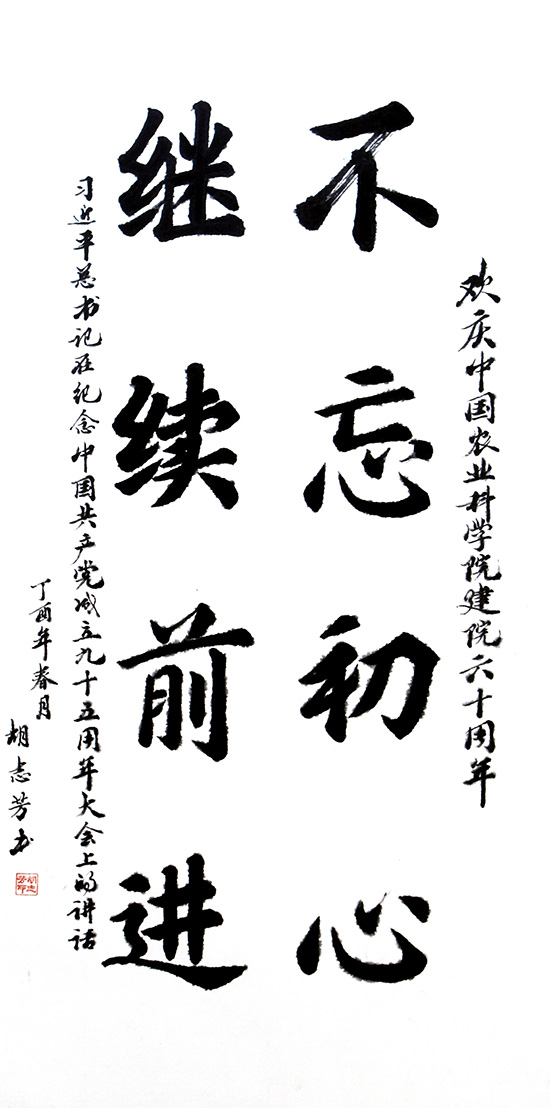 欢庆中国农业科学院建院六十周年
不忘初心
继续前进
习近平总书记在纪念中国共产党成立九十五周年大会上的讲话
丁酉年春月
胡志芳书